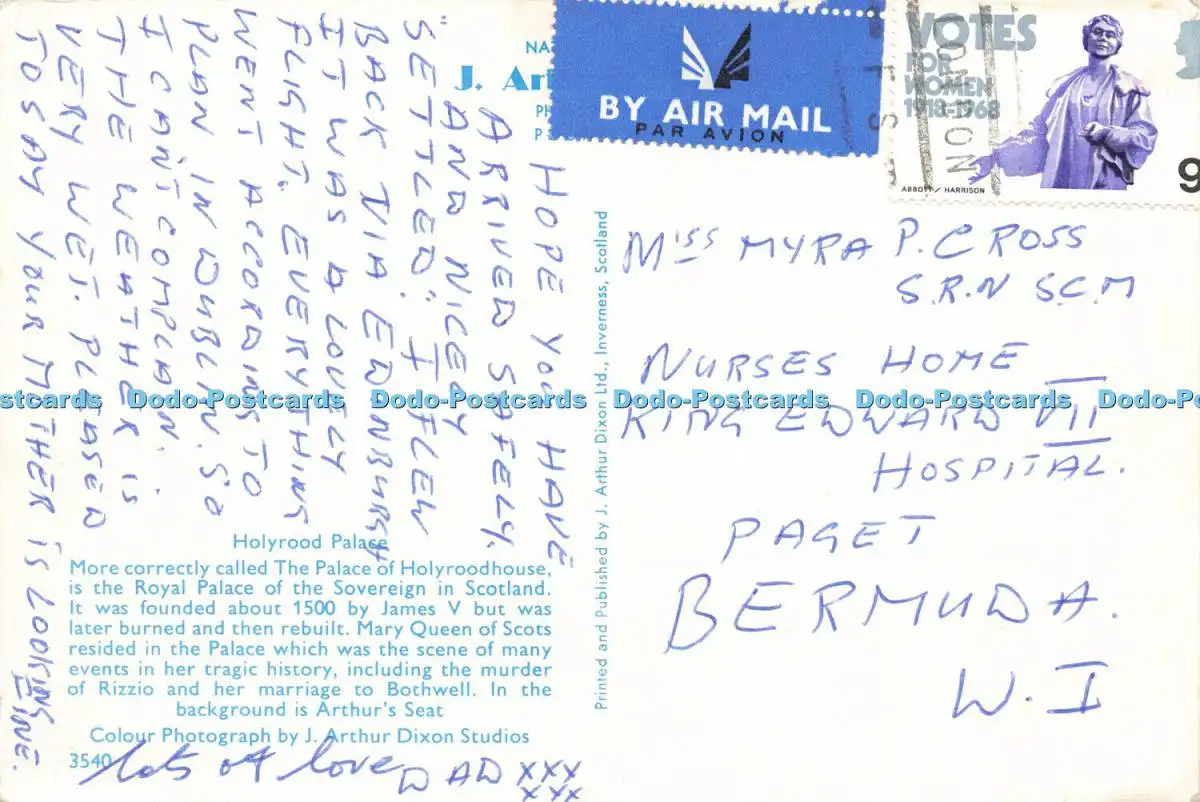 HOPE YOU HAVE
ARRIVED SAFELY.
AND NICELY
"SETTLED". I FLEW
BACK VIA EDINBURGH
IT WAS A LOVELY
FLIGHT. EVERYTHING
WENT ACCORDING TO
PLAN IN DUBLIN. SO
I CAN'T COMPLAIN.
THE WEATHER IS
VERY WET. PLEASED
TO SAY YOUR MOTHER IS LOOKING
FINE.
lots of love DAD XXX
XXX
NA
J. Art
PH
BY AIR MAIL
PAR AVION
VOTES
FOR
WOMEN
1918-1968
ABBOTT/HARRISON
9
LONDON
Miss MYRA P. CROSS
S.R.N S.C.M
NURSES HOME
KING EDWARD VII
HOSPITAL.
PAGET
BERMUDA.
W.I
Printed and Published by J. Arthur Dixon Ltd., Inverness, Scotland
Holyrood Palace
More correctly called The Palace of Holyroodhouse,
is the Royal Palace of the Sovereign in Scotland.
It was founded about 1500 by James V but was
later burned and then rebuilt. Mary Queen of Scots
resided in the Palace which was the scene of many
events in her tragic history, including the murder
of Rizzio and her marriage to Bothwell. In the
background is Arthur's Seat
Colour Photograph by J. Arthur Dixon Studios
3540
stcards Dodo-Postcards Dodo-Postcards Dodo-Postcards Dodo-Postcards Dodo-Po